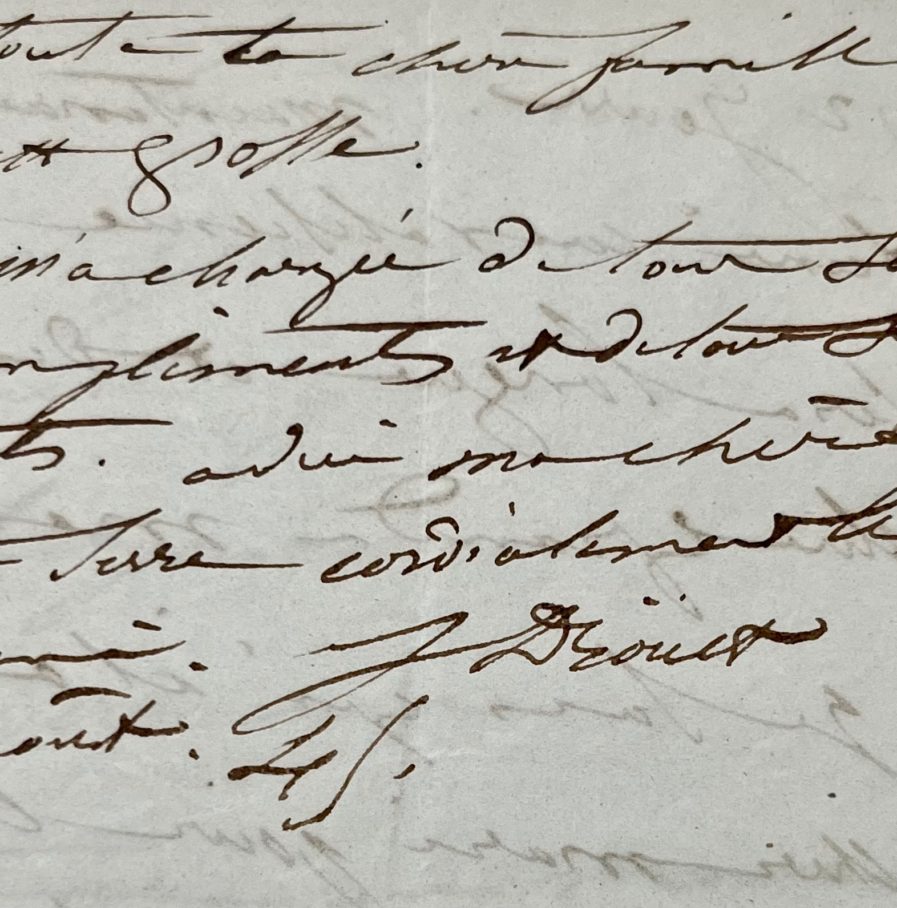 toute ta chère famille
grosse.
m'a chargée de tous Se
mpliments et de tous S
ts. adieu ma chère
serre cordialement le
mie. J Droüet
oust. 45.